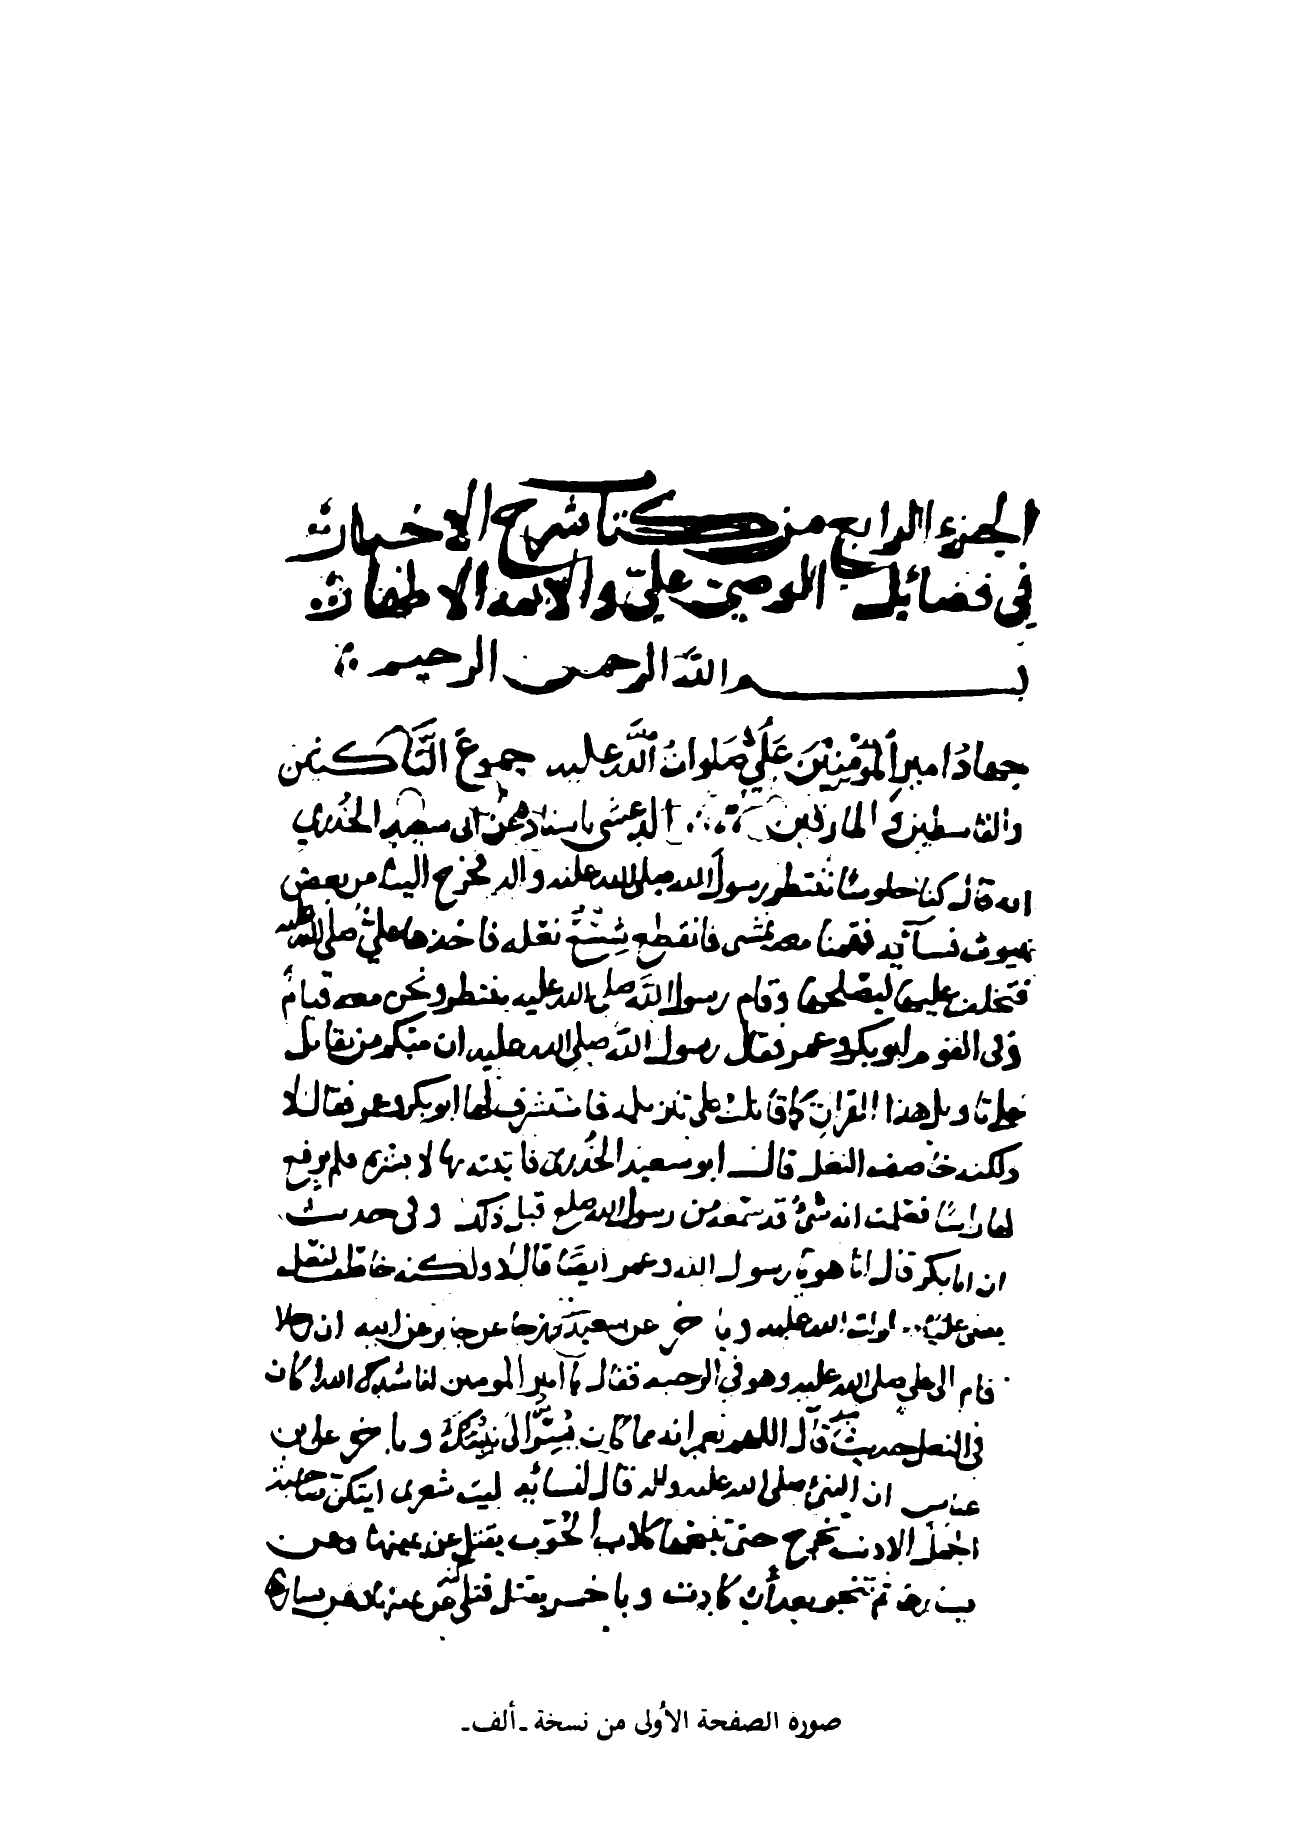 الجزء الرابع من كتاب شرح الاخبار
في فضائل الوصي علي والائمه الاطهار
بسم الله الرحمن الرحيم
جهادُ امير المؤمنين عَلي صَلوات اللّه عليه جموعَ النّاكثين
والقاسطين و المارقين الدغشي باسناده عن ابى سعيد الخُدري
انه قال كنا جلوسًا ننتظر رسول الله صلى الله عليه واله فخرج الينا من بعض
بيوت نسآئه فقمنا معه نمشى فانقطع شِسْعُ نعله فاخذها علي صلى الله عليه
فتخلف عليها ليصلحها وقام رسول اللّه صلى الله عليه ينتظره ونحن معه قيام
وفى القوم ابو بكر وعمر فقال رسول اللّه صلى الله عليه ان منكم من يقاتل
على تاويل هذا القران كما قاتلت على تنزيله فاستشرف لها ابو بكر وعمر فقال لا
ولكنه خاصف النعل قال ابو سعيد الخُدرى فابتدته بها لا بشره فلم يرفع
لها راسًا فقلت انه شئ قد سمعه من رسول الله صلع قبل ذلك وفى حديث
ان ابابكر قال انا هو يا رسول الله وعمر ايضًا قال لا ولكنه خاصف النعل
يعنى عليًا الله عليه وباخر عن سعيد عن جابر عن ابيه ان رجلا
قام الى على صلى الله عليه وهو في الرحبه فقال يا امير المومنين اناشدك الله اكان
فى النعل حديث قال اللهم نعم انه مما كان يُسِرّ الىَّ نبيّك وباخر على بن
عباس ان النبى صلى الله عليه واله قال لنسائه ليت شعرى ايتكن صاحبة
الجمل الادبب تخرج حتى تنبحها كلاب الحوب يقتل عن يمينها وعن
ثم تنجو بعد أن كادت وباخر يقتل قتلى كثير عن يمينها وعن يسارها
صورة الصفحة الأولى من نسخة ـ ألف ـ